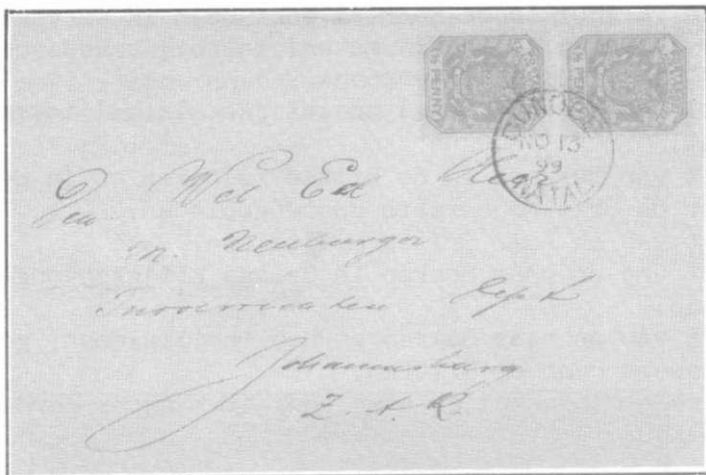 ½ PENNY
½ PENNY
DUNDEE
NO 13
99
NATAL
Den Wel Ed Heer
M. Neuburger
Johannesburg
Z. A. R.